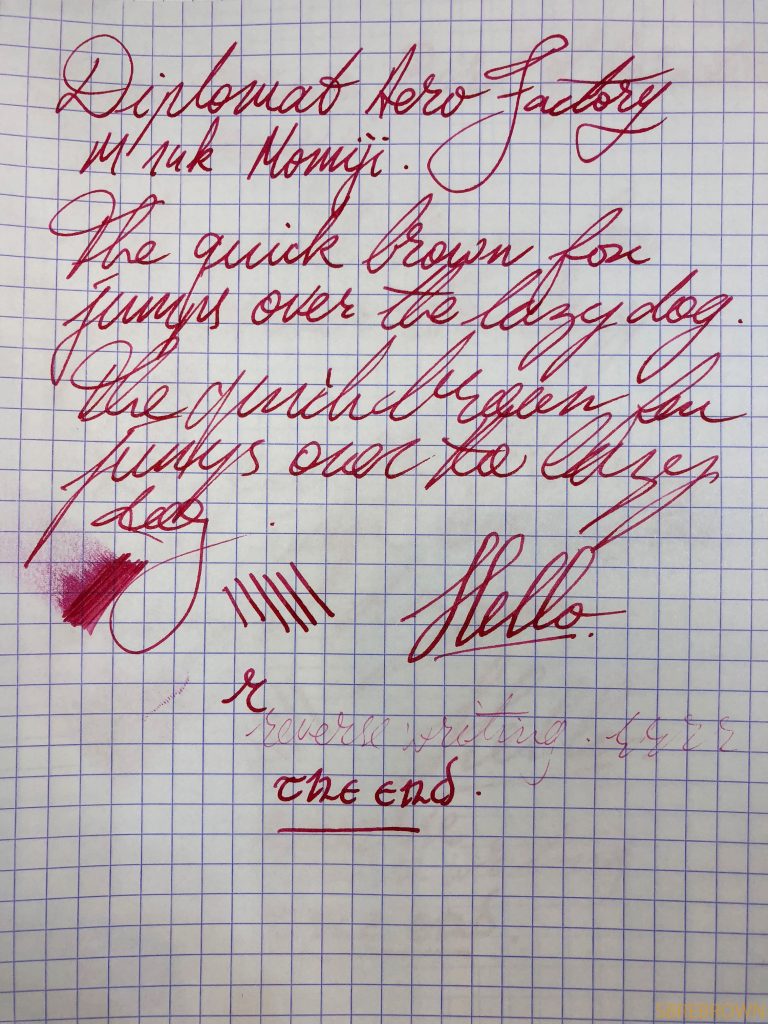 Diplomat Aero Factory
M nuk Momiji.
The quick brown fox
jumps over the lazy dog.
The quick brown fox
jumps over the lazy
dog.
Hello.
r
reverse writing.
the end.